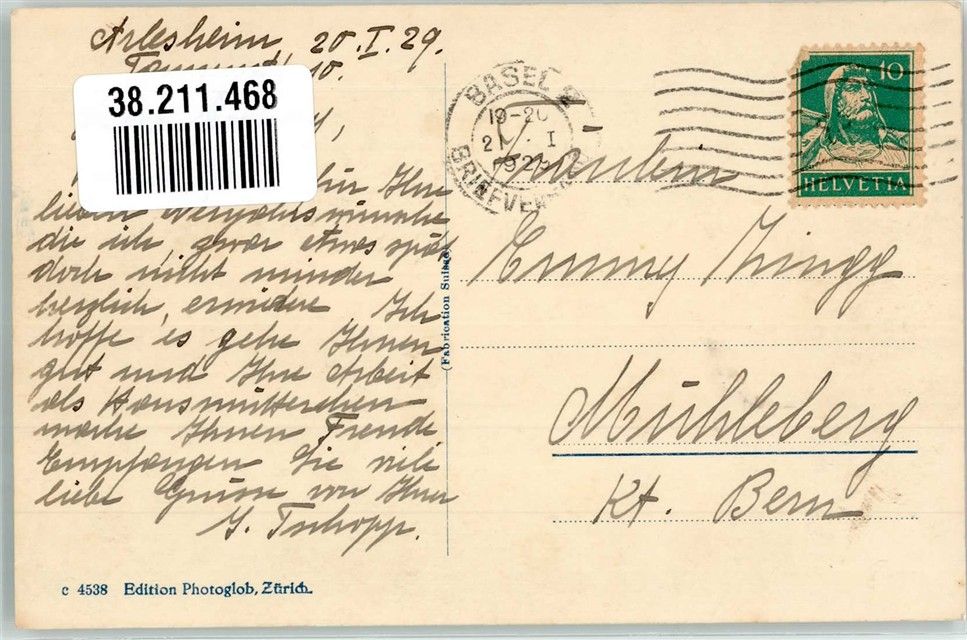 Arlesheim, 20.I.29.
38.211.468
für Ihre
lieben Neujahrswünsche
die ich, zwar etwas spät
doch nicht minder
herzlich, erwidere. Ich
hoffe es gehe Ihnen
gut und Ihre Arbeit
als Hausmütterchen
mache Ihnen Freude
Empfangen Sie viele
liebe Grüsse von Ihrer
G. Tschopp.
c 4538 Edition Photoglob, Zürich.
(Fabrication Suisse)
BASEL 2
19-20
21.I
1929
BRIEFVER
10
HELVETIA
Fräulein
Emmy Zingg
Mühleberg
Kt. Bern